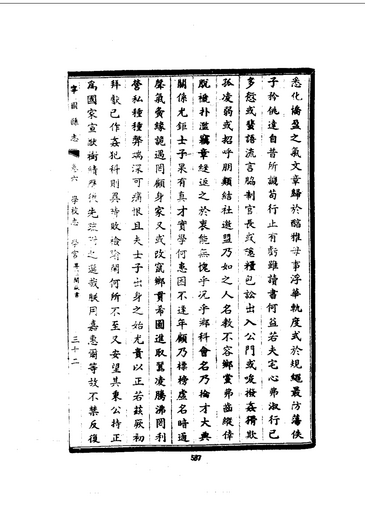 悉化僑盈之氣文章歸於醇雅毋事浮華軌度式於規繩最防蕩佚
子衿佻達自昔所譏苟行止有虧雖讀書何益若夫宅心弗淑行己
多愆或蜚語流言脇制官長或隱糧包訟出入公門或唆撥姦猾欺
孤凌弱或招呼朋類結社邀盟乃如之人名教不容鄉黨弗齒縱倖
脫褫扑濫竊章縫返之於衷能無愧乎況乎鄉科會名乃掄才大典
關係尤鉅士子果有真才實學何患困不逢年顧乃標榜虛名暗通
聲氣夤緣詭遇罔顧身家又或改竄鄉貫希圖進取囂凌騰沸罔利
營私種種弊端深可痛恨且夫士子出身之始尤貴以正若茲厥初
拜獻已作姦犯科則異時敗檢踰閑何所不至又安望其秉公持正
為國家宣猷樹績膺後先疏附之選哉朕用嘉惠爾等故不禁反復
寧國縣志 卷六 學校志 學宮 三十二
587